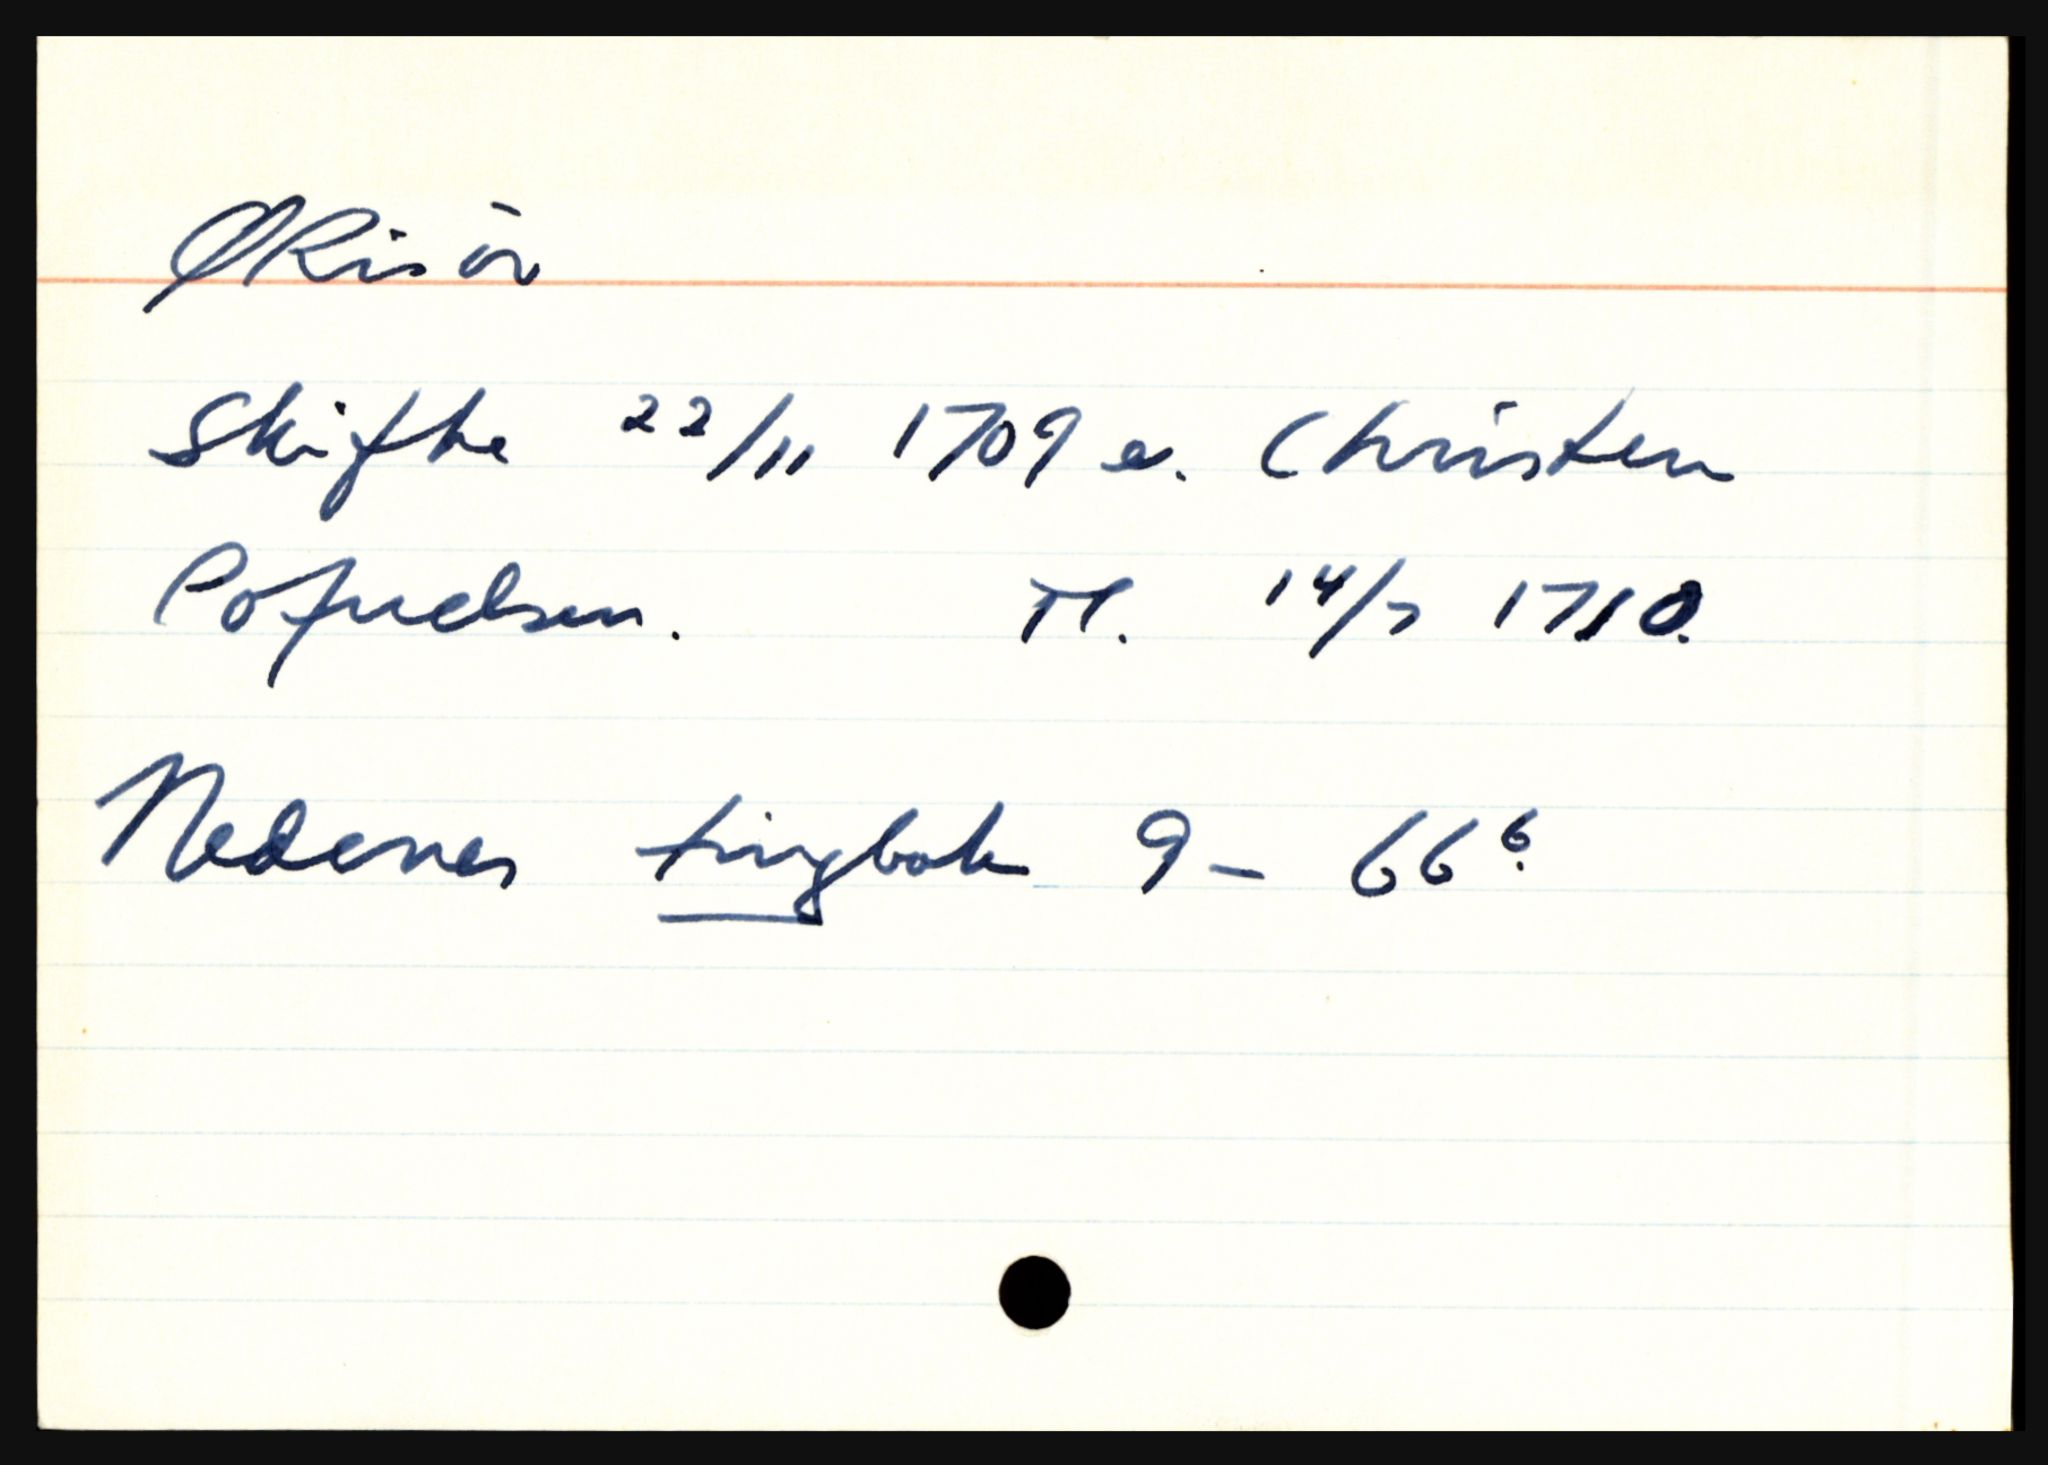 ØRisör
Skifte 22/11 1709 e. Christen
Tl. 14/7 1710.
Nedenes tingbok 9 - 66 6.